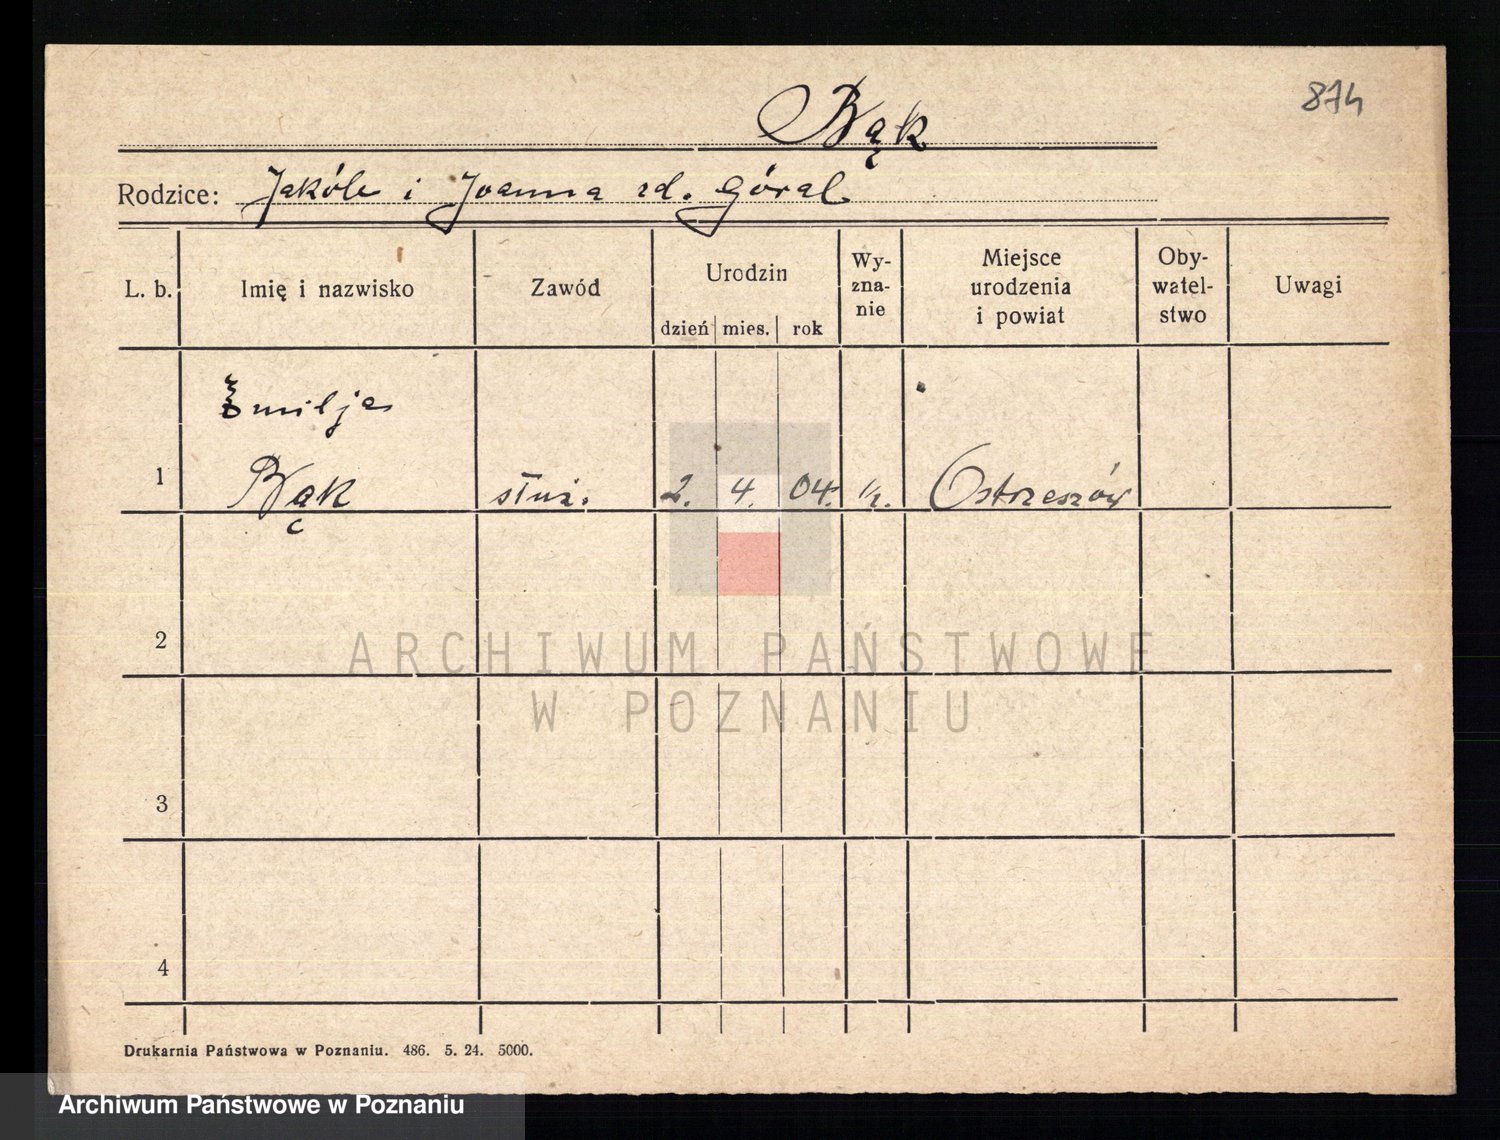 874
Bąk
Rodzice: Jakób i Joanna zd. Góral
L. b. Imię i nazwisko Zawód Urodzin dzień mies. rok Wy-zna-nie Miejsce urodzenia i powiat Oby-watel-stwo Uwagi
Emilja
1 Bąk służ. 2. 4. 04. Ostrzeszów
2
ARCHIWUM PAŃSTWOWE
W POZNANIU
3
4
Drukarnia Państwowa w Poznaniu. 486. 5. 24. 5000.
Archiwum Państwowe w Poznaniu